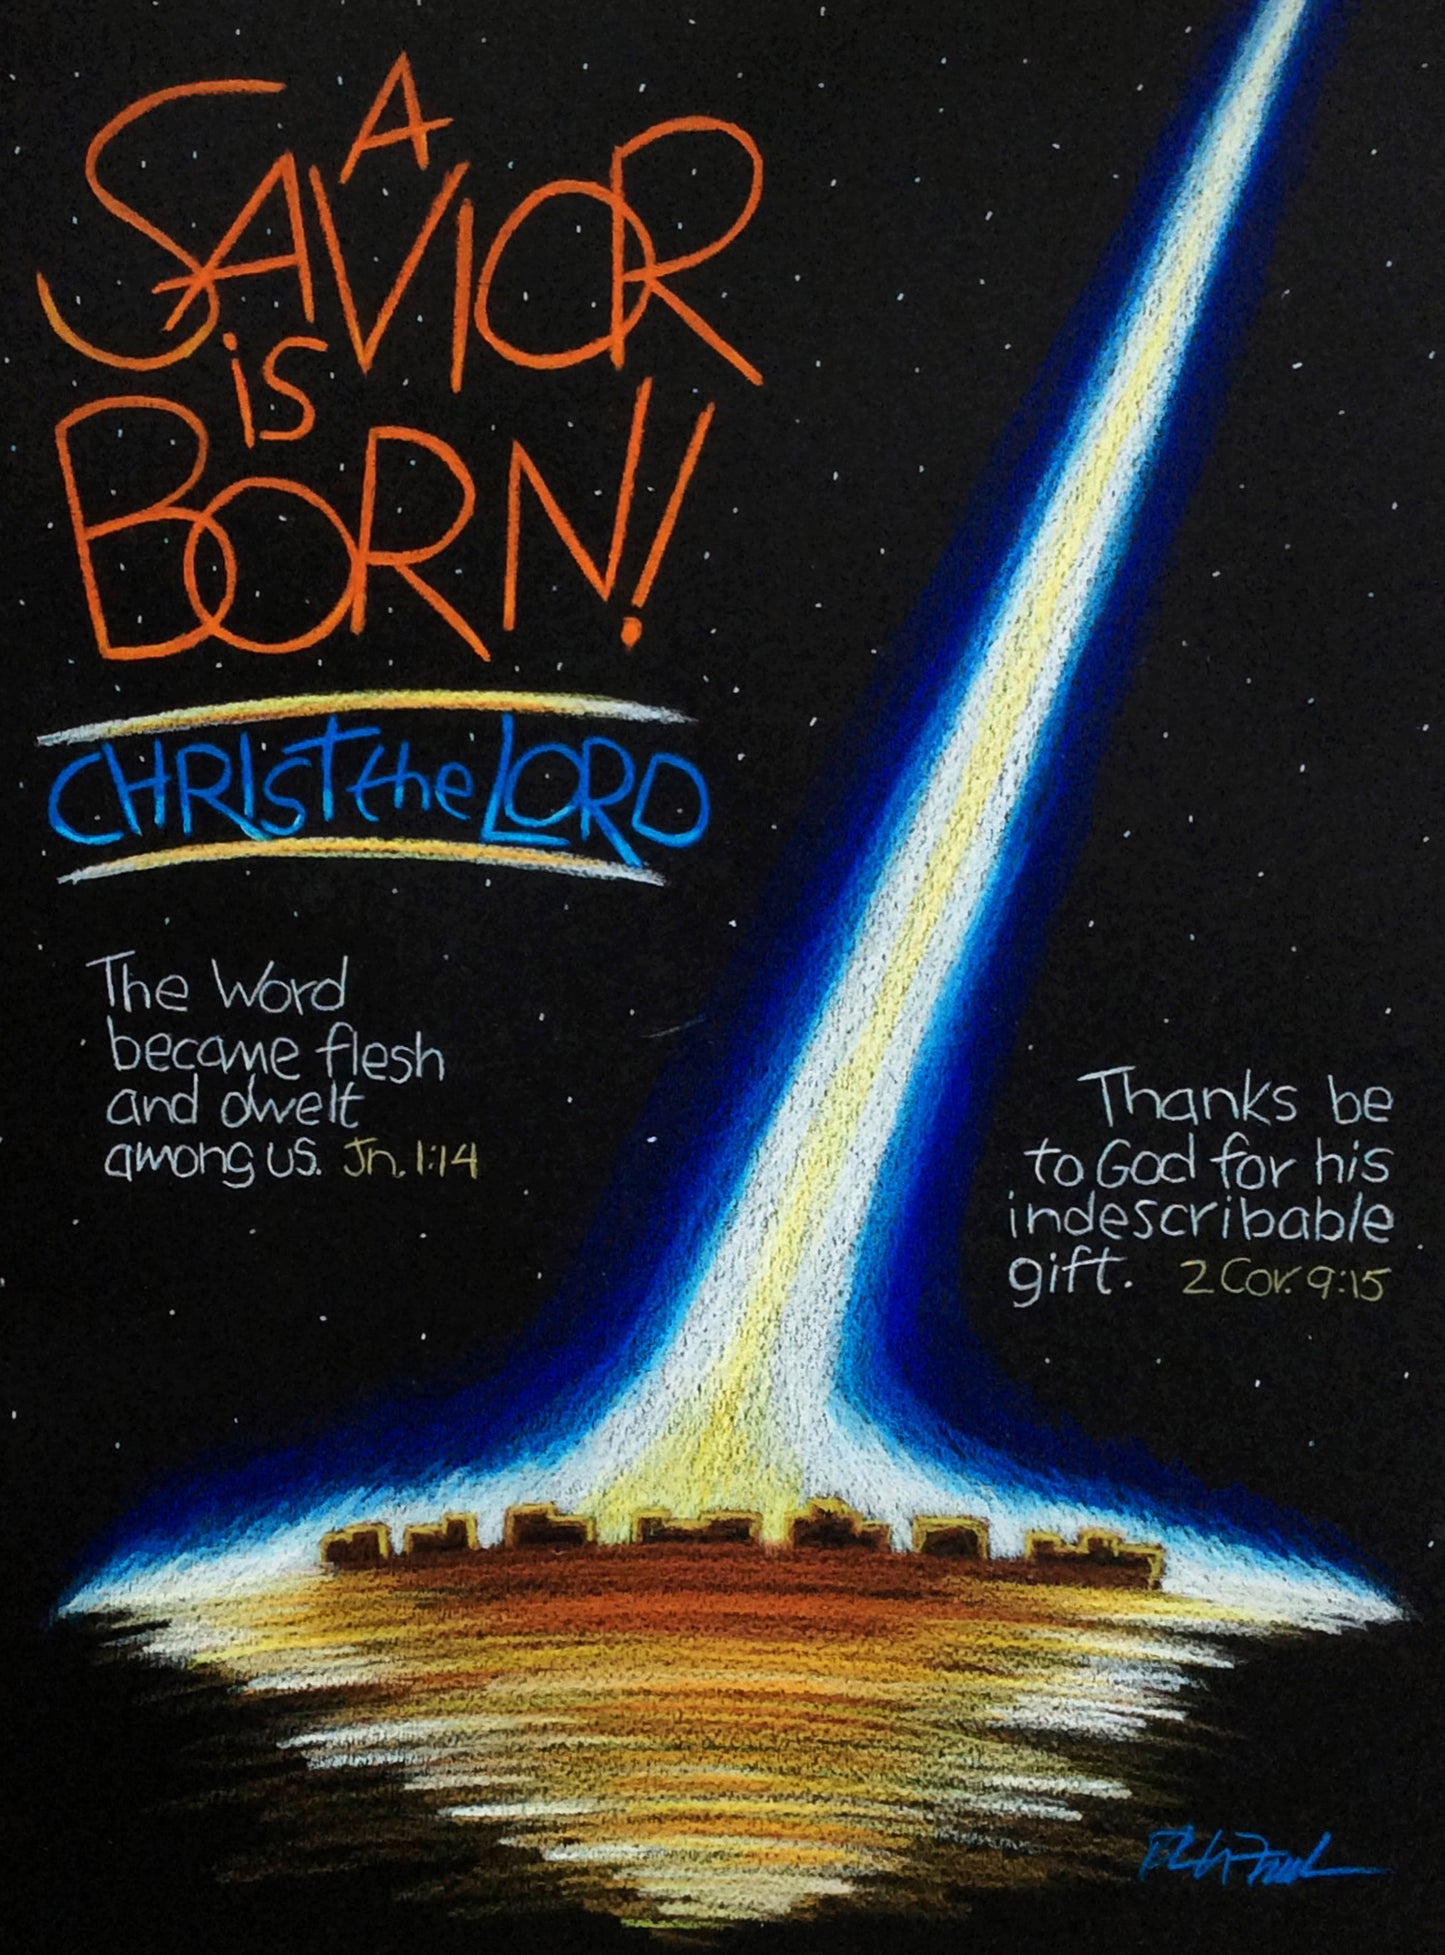 A
SAVIOR
is
BORN!
CHRIST the LORD
The Word
became flesh
and dwelt
among us. Jn. 1:14
Thanks be
to God for his
indescribable
gift. 2 Cor. 9:15